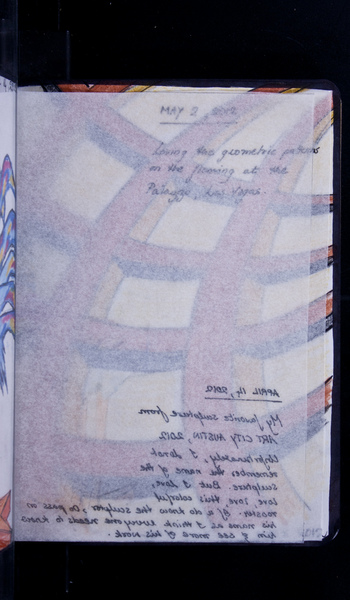 MAY 2, 2012
Loving the geometric patterns
in the flooring at the
Palazzo, Las Vegas.
APRIL 14, 2012
My favorite sculpture from
ART CITY AUSTIN, 2012.
Unfortunately, I do not
remember the name of the
sculpture. But I love,
love, love this colorful
rooster. If u do know the sculptor, do pass on
his name as I think everyone needs to know
him & see more of his work.